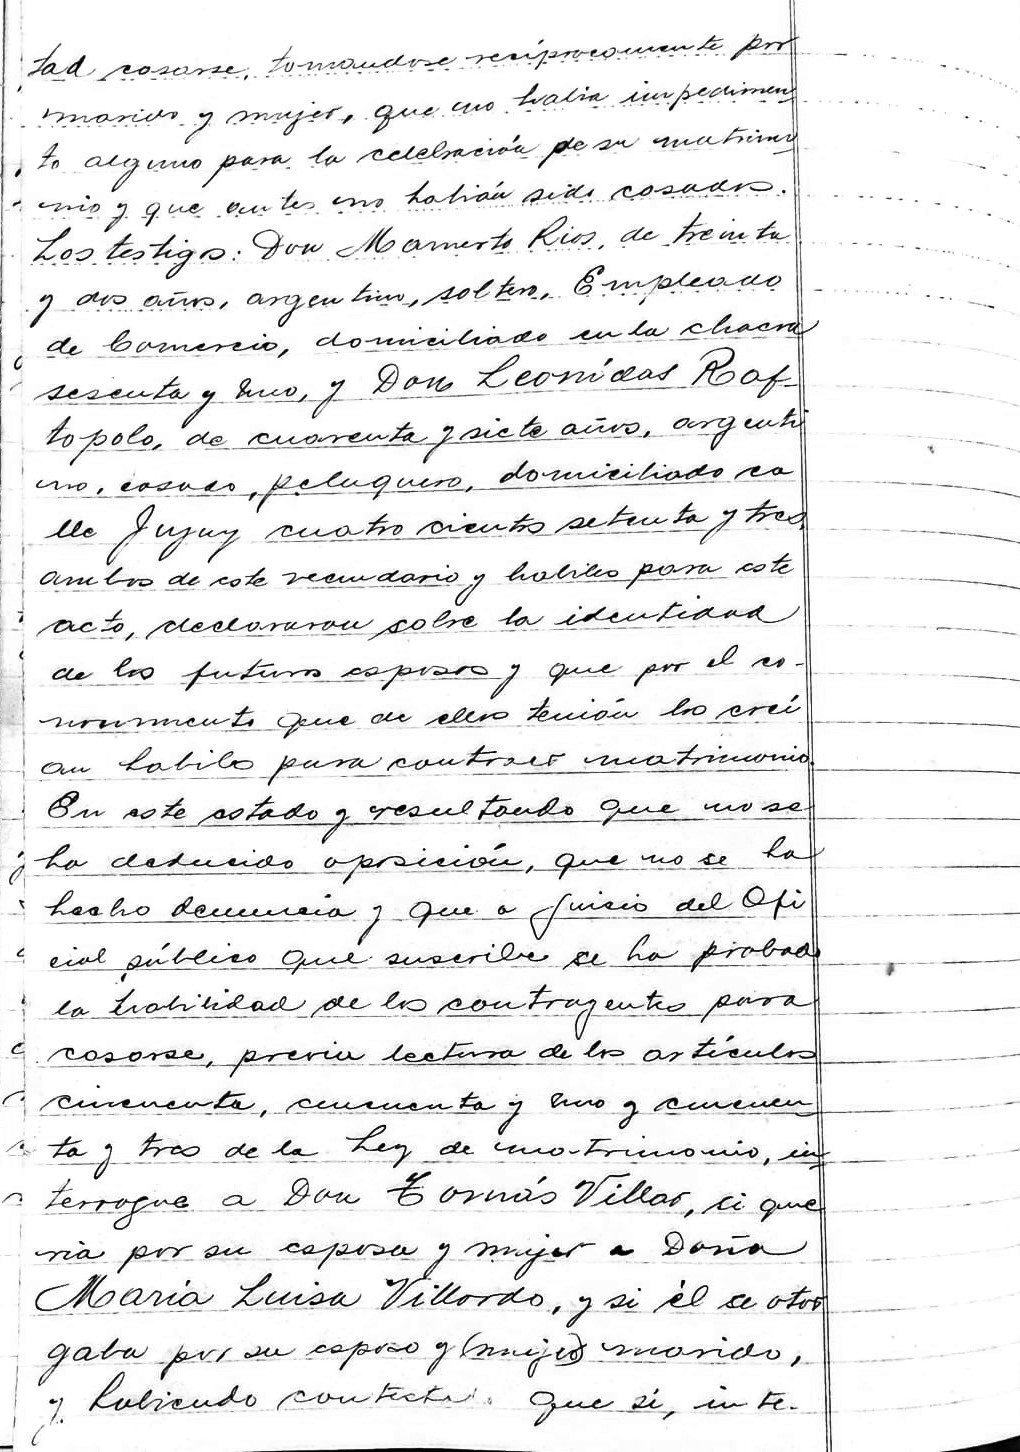 tad casarse, tomandose recíprocamente por
marido y mujer, que no habia impedimen
to alguno para la celebración de su matrimo
nio y que antes no habían sido casados.
Los testigos: Don Mamerto Rios, de treinta
y dos años, argentino, soltero, Empleado
de Comercio, domiciliado en la chacra
sesenta y uno, y Don Leonidas Raf-
topolo, de cuarenta y siete años, argenti
no, casado, peluquero, domiciliado ca
lle Jujuy cuatro cientos setenta y tres,
ambos de este vecindario y habiles para este
acto, declararon sobre la identidad
de los futuros esposos y que por el co-
nocimiento que de ellos tenían los creí
an habiles para contraer matrimonio.
En este estado y resultando que no se
ha deducido oposición, que no se ha
hecho denuncia y que a juicio del Ofi
cial público que suscribe se ha probado
la habilidad de los contrayentes para
casarse, previa lectura de los artículos
cincuenta, cincuenta y uno y cincuen
ta y tres de la Ley de matrimonio, in
terrogué a Don Tomás Villar, si que
ria por su esposa y mujer a Doña
María Luisa Villordo, y si él se otor
gaba por su esposo y (mujer) marido,
y habiendo contesta que si, inte-